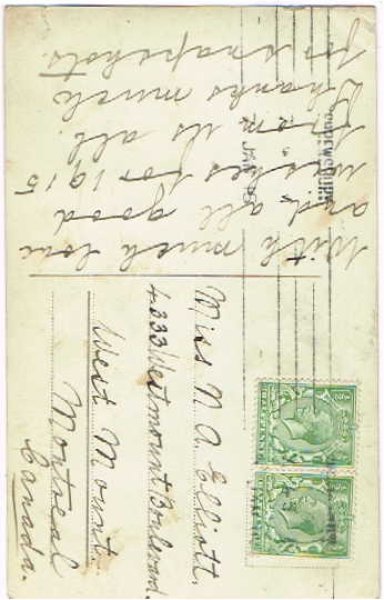 With much love
and all good
wishes for 1915
from us all.
Thanks much
for snapshots.
Miss N A Elliott.
4333 Westmount Boulevard.
West Mount.
Montreal
Canada.